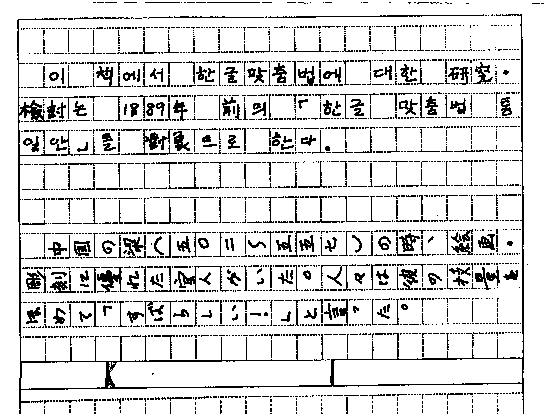 이 책에서 한글맞춤법에 대한 研究.
檢討는 1889年 前의 「한글 맞춤법 통
일안」을 對象으로 한다.
中国の梁(五〇二〜五五七)の時、絵画。
彫刻に優れた官人がいた。人々は彼の技量を
ほめて「すばらしい!」と言った。